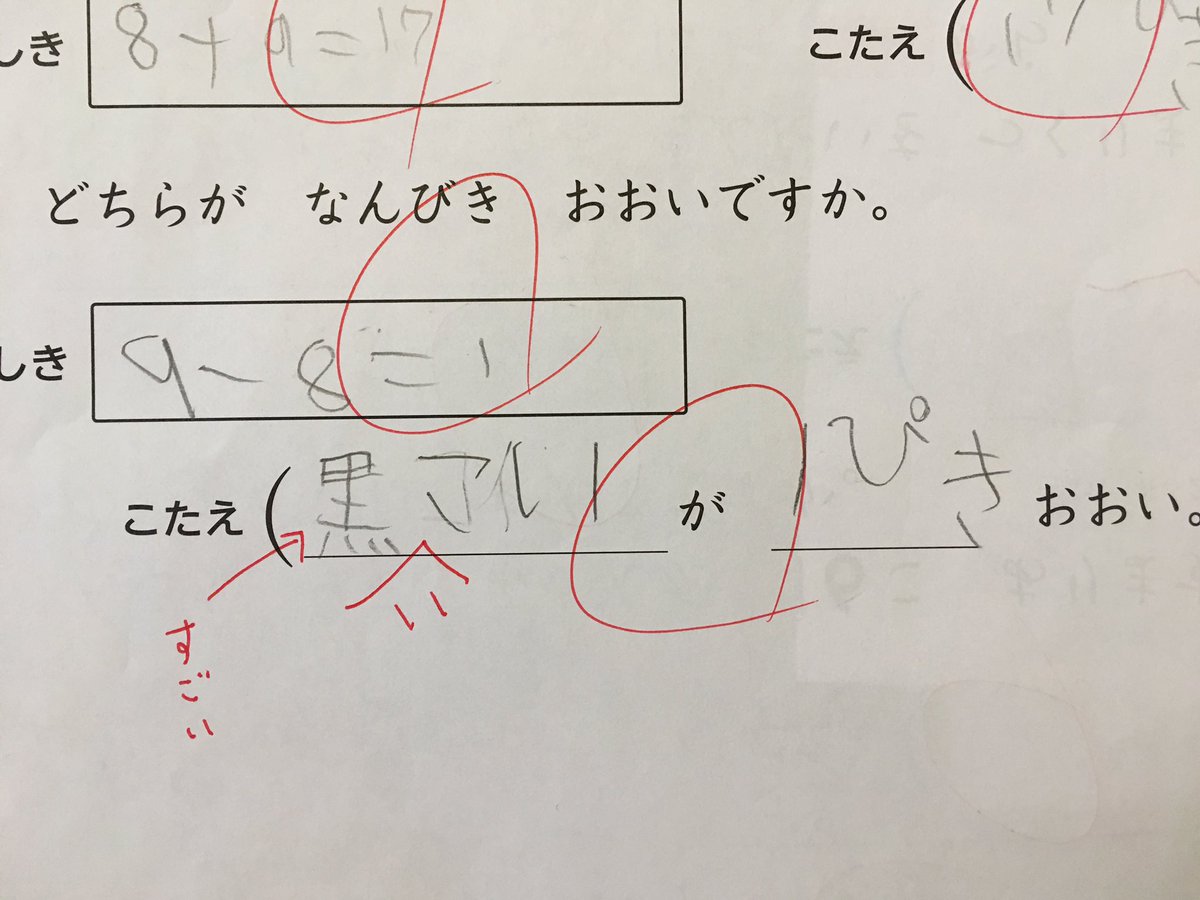 しき 8+9=17 こたえ (17
どちらが なんびき おおいですか。
しき 9-8=1
こたえ (黒アリ が 1ぴき おおい。
すごい